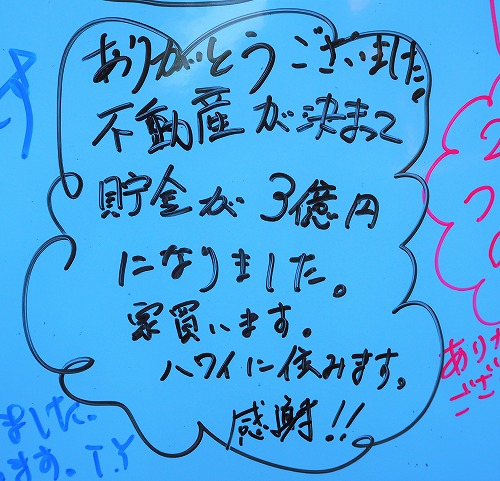 ありがとうございました。
不動産が決まって
貯金が3億円
になりました。
家買います。
ハワイに住みます。
感謝!!
ありが
ござい
ました。
ます。T.Y